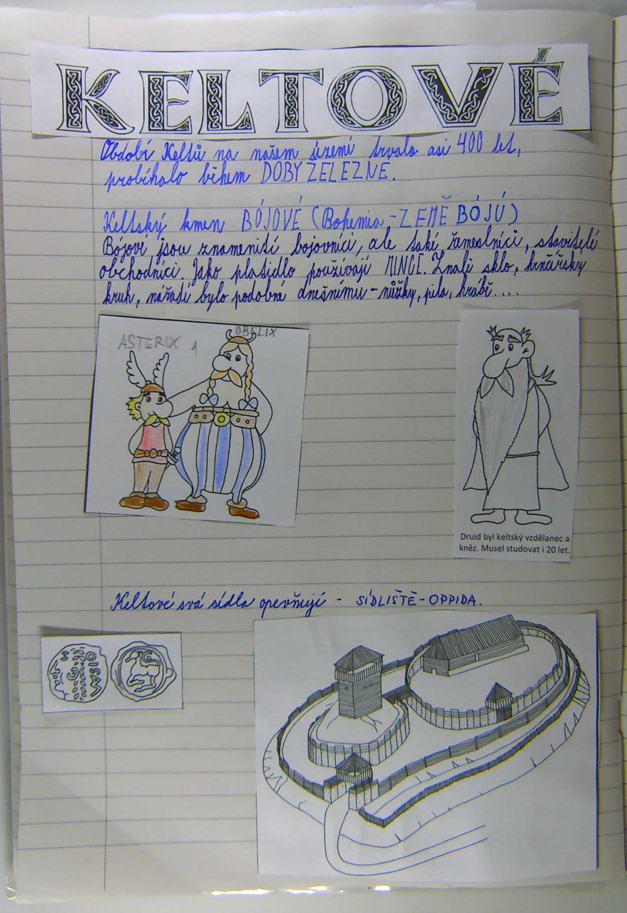 KELTOVÉ
Období Keltů na našem území trvalo asi 400 let,
probíhalo během DOBY ŽELEZNÉ.
Keltský kmen BÓJOVÉ (Bohemia - ZEMĚ BÓJŮ)
Bójové jsou znamenití bojovníci, ale také řemeslníci, stavitelé
obchodníci. Jako platidlo používají MINCE. Znali sklo, hrnčířský
kruh, nářadí bylo podobné dnešnímu - nůžky, pila, hrábě....
ASTERIX A OBELIX
Druid byl keltský vzdělanec a
kněz. Musel studovat i 20 let.
Keltové svá sídla opevňují - SÍDLIŠTĚ - OPPIDA.